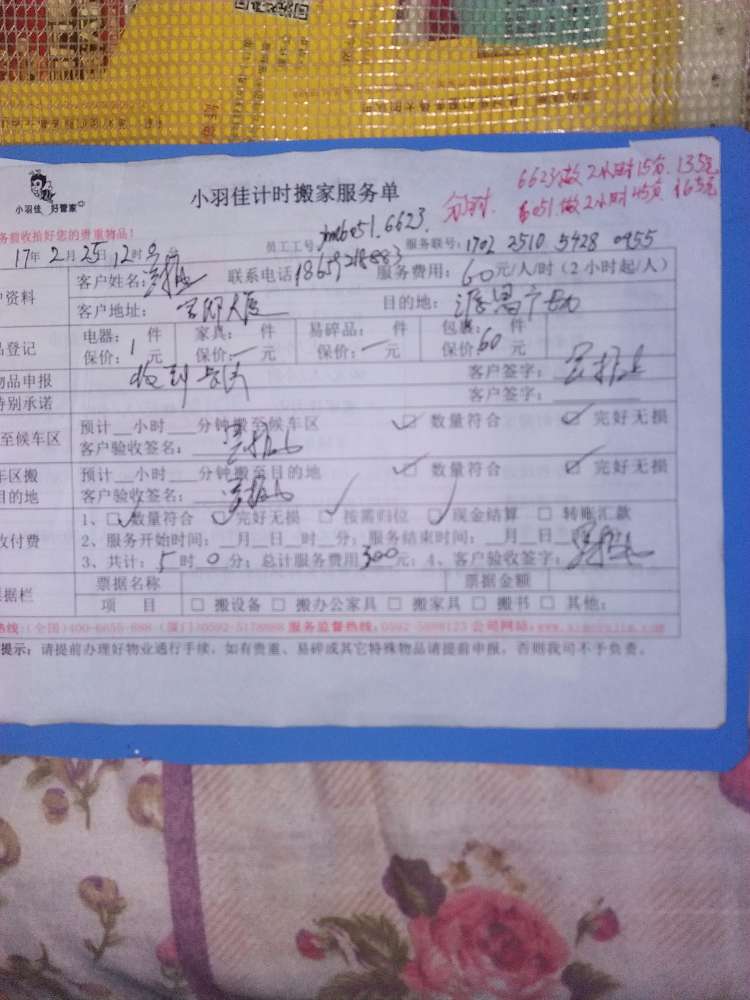 小羽佳 好管家
小羽佳计时搬家服务单
分时. 6623做2小时15分.135元
6051.做2小时45分.165元
务必验收拾好您的贵重物品!
17年2月25日12时0分
员工工号 xm6051.6623. 服务联号:1702 2510 5428 0955
户资料
客户姓名: 联系电话 服务费用:60元/人/时(2小时起/人)
客户地址: 目的地:
品登记
电器: 件 家具: 件 易碎品: 件 包裹: 件
保价:1元 保价:一元 保价:一元 保价:60元
物品申报 客户签字:
特别承诺 客户签字:
至候车区
预计__小时__分钟搬至候车区 ☑ 数量符合 ☑ 完好无损
客户验收签名:
车区搬
目的地
预计__小时__分钟搬至目的地 ☑ 数量符合 ☑ 完好无损
客户验收签名:
收付费
1、☑ 数量符合 ☑ 完好无损 ☑ 按需归位 ☑ 现金结算 □ 转账汇款
2、服务开始时间:__月__日__时__分;服务结束时间:__月__日
3、共计:5时0分;总计服务费用300元;4、客户验收签字:
票据栏
票据名称 票据金额
项 目 □ 搬设备 □ 搬办公家具 □ 搬家具 □ 搬书 □ 其他:
热线:(全国)400-6655-888 (厦门)0592-5178888 服务监督热线:0592-5898123 公司网站:
提示:请提前办理好物业通行手续,如有贵重、易碎或其它特殊物品请提前申报,否则我司不予负责。